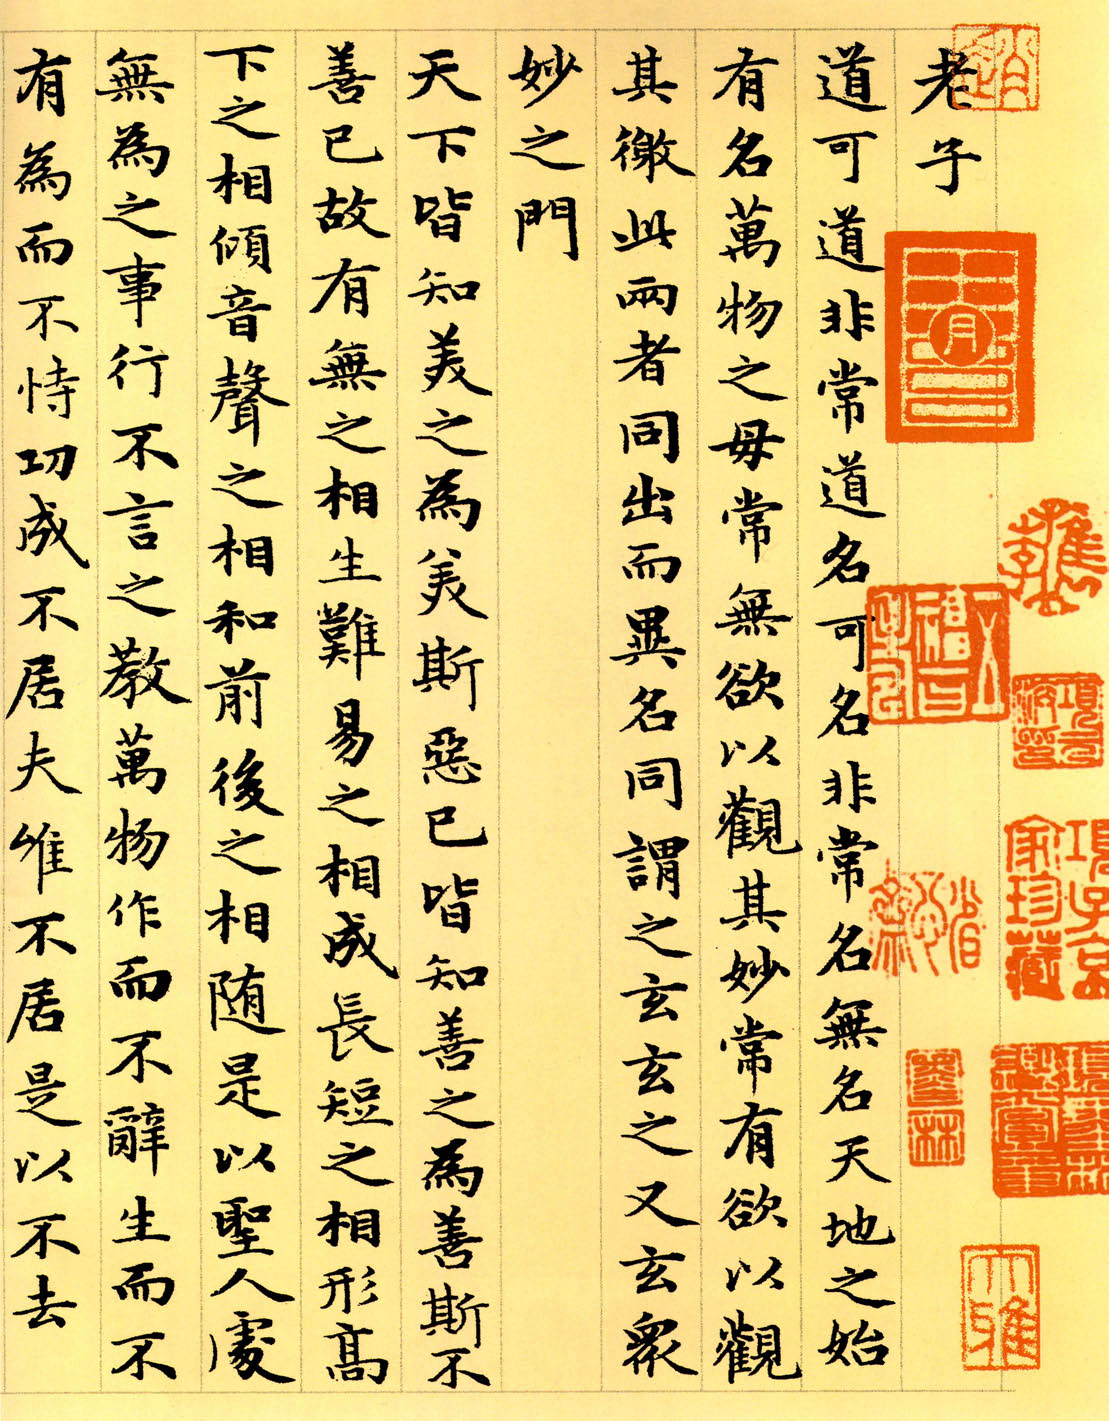 老子
道可道非常道名可名非常名無名天地之始
有名萬物之母常無欲以觀其妙常有欲以觀
其徼此兩者同出而異名同謂之玄玄之又玄眾
妙之門
天下皆知美之為美斯惡已皆知善之為善斯不
善已故有無之相生難易之相成長短之相形高
下之相傾音聲之相和前後之相随是以聖人處
無為之事行不言之教萬物作而不辭生而不
有為而不恃功成不居夫唯不居是以不去